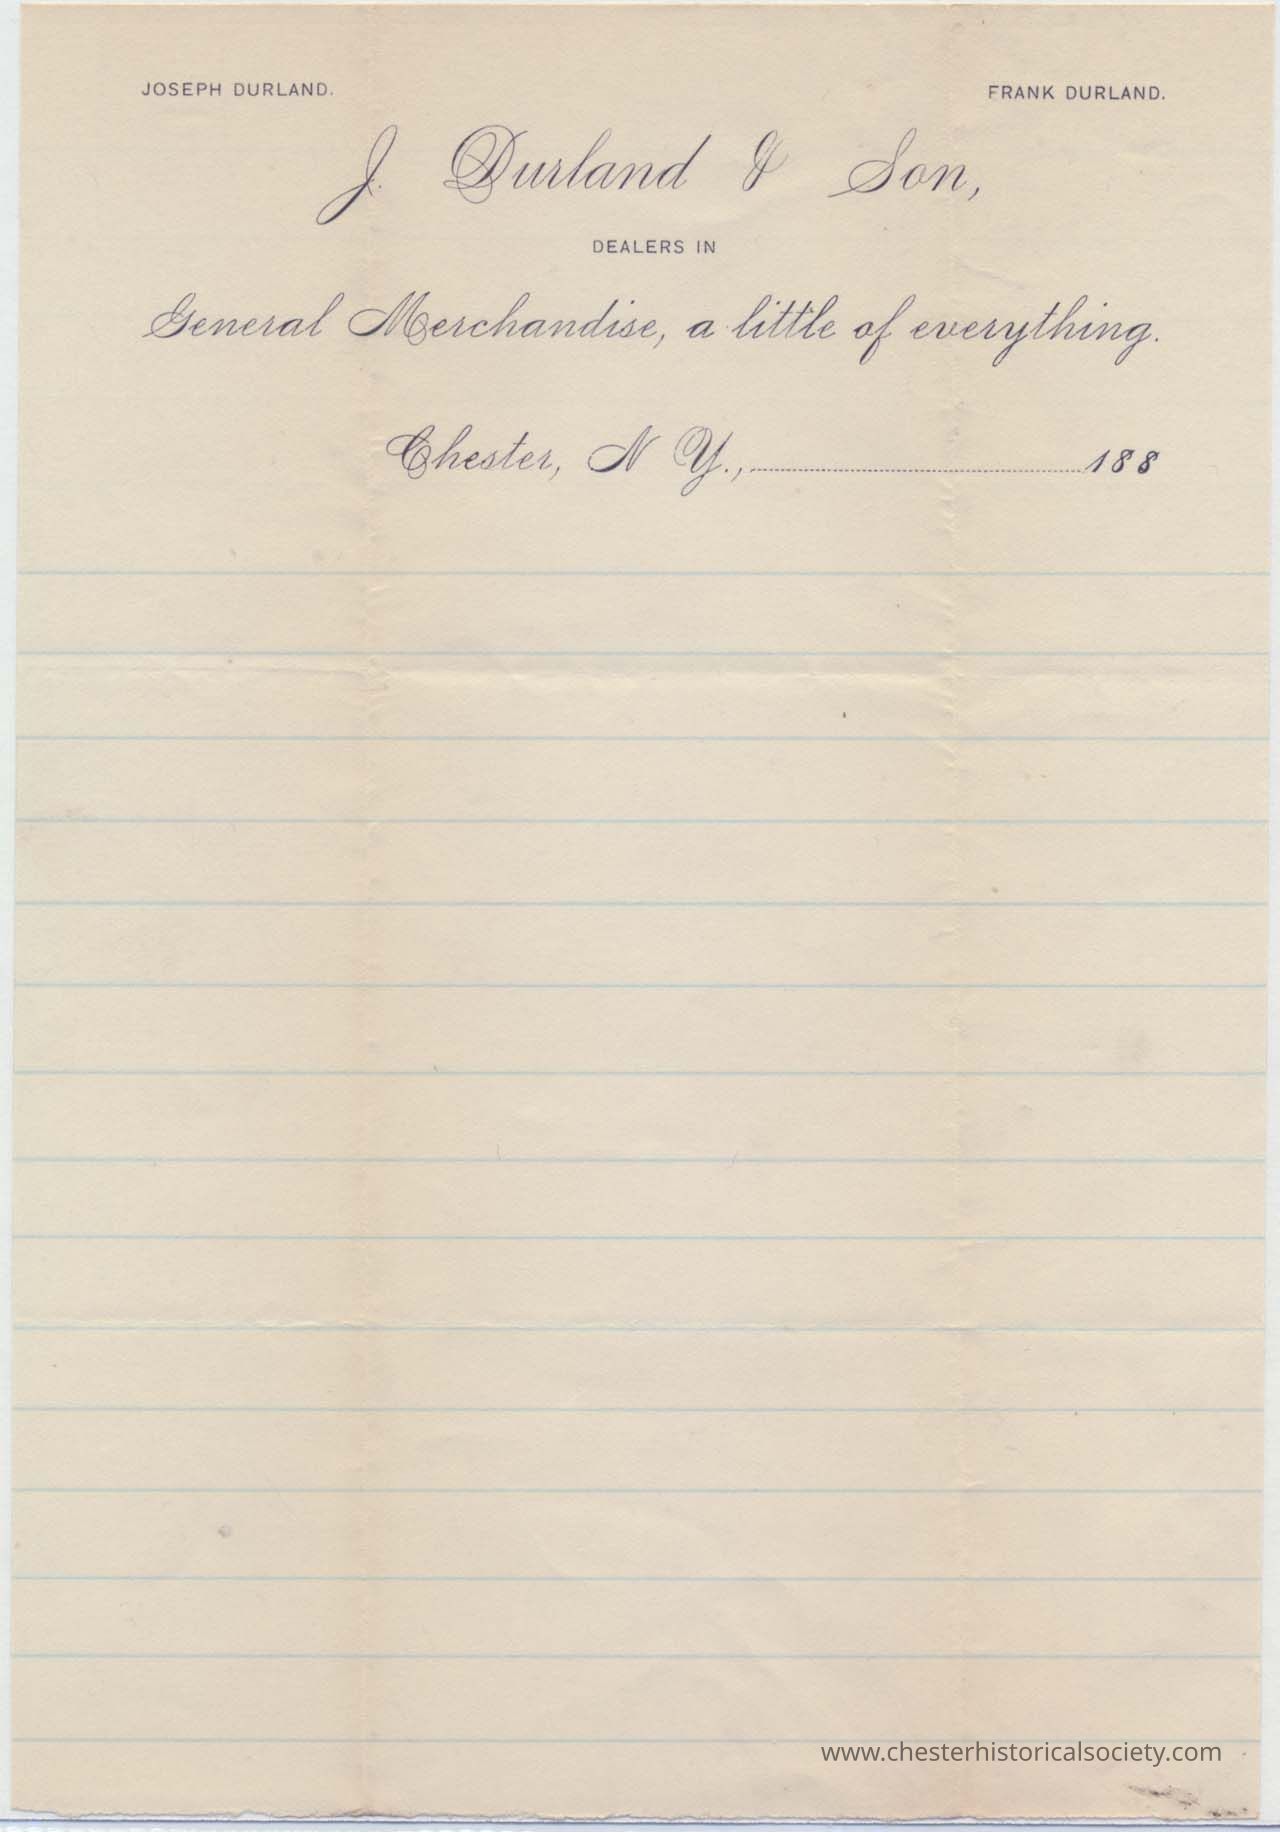 JOSEPH DURLAND. FRANK DURLAND.
J. Durland & Son,
DEALERS IN
General Merchandise, a little of everything.
Chester, N Y., 188
www.chesterhistoricalsociety.com